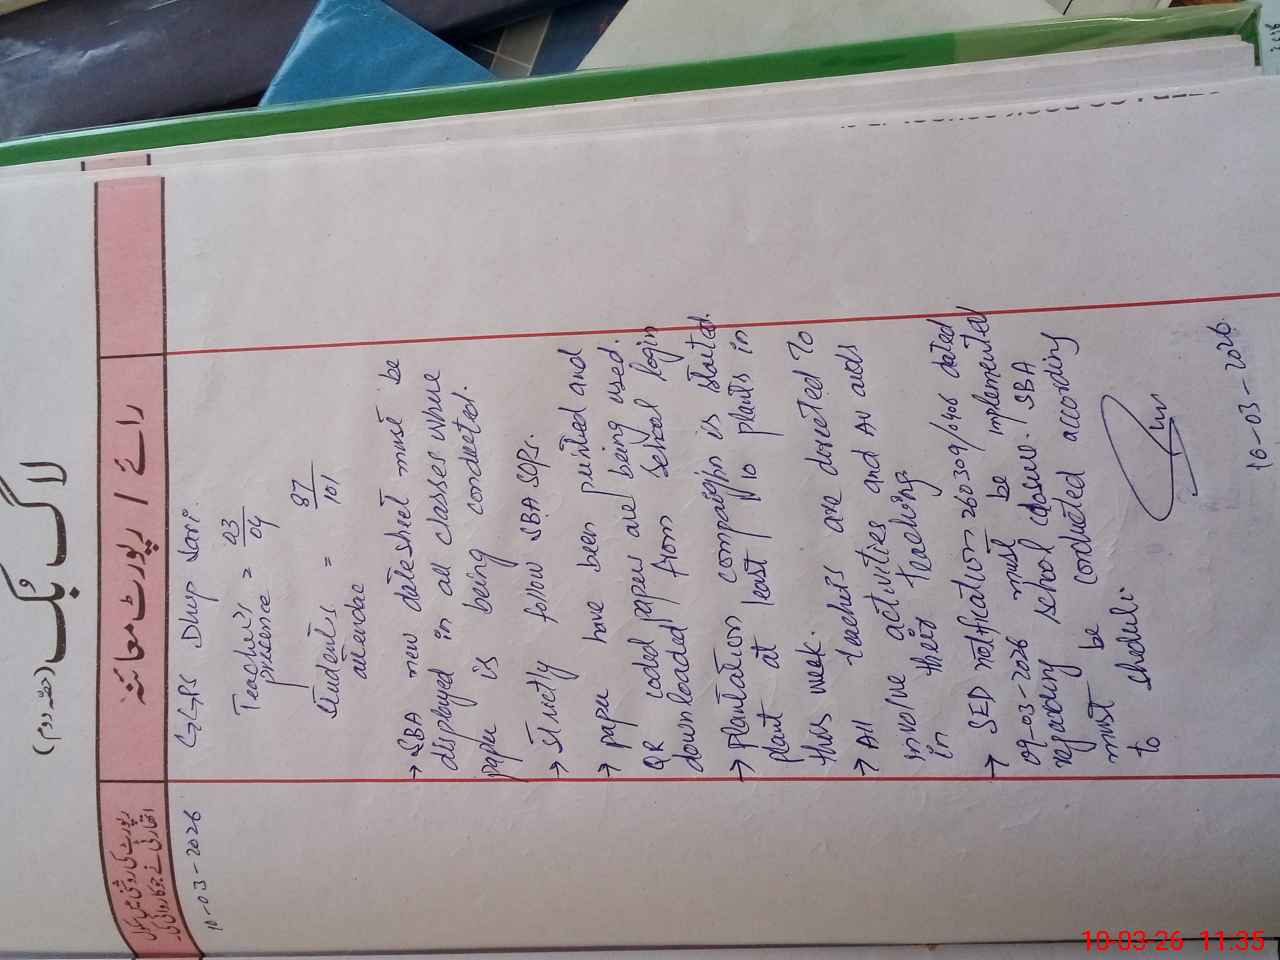 لاگ بک (حصہ دوم)
رپورٹ کی روشنی میں سکول
اتھارٹی نے جو کاروائی کی۔
رائے / رپورٹ معائنہ
10-03-2026
GGPS Dhup Sari.
Teacher's presence = 03/04
Students attendac = 87/101
→ SBA new datesheet must be
displayed in all classes where
paper is being conducted.
→ strictly follow SBA SOPs.
→ paper have been printed and
QR coded papers are being used.
downloaded from school login
→ plantation compaign is started.
plant at least 10 plants in
this week.
→ All teachers are directed to
involve activities and AV aids
in their teaching
→ SED notification 260309/0406 dated
09-03-2026 must be implemented
regarding school closure. SBA
must be conducted according
to shedule
10-03-2026.
10-03-26 11:35